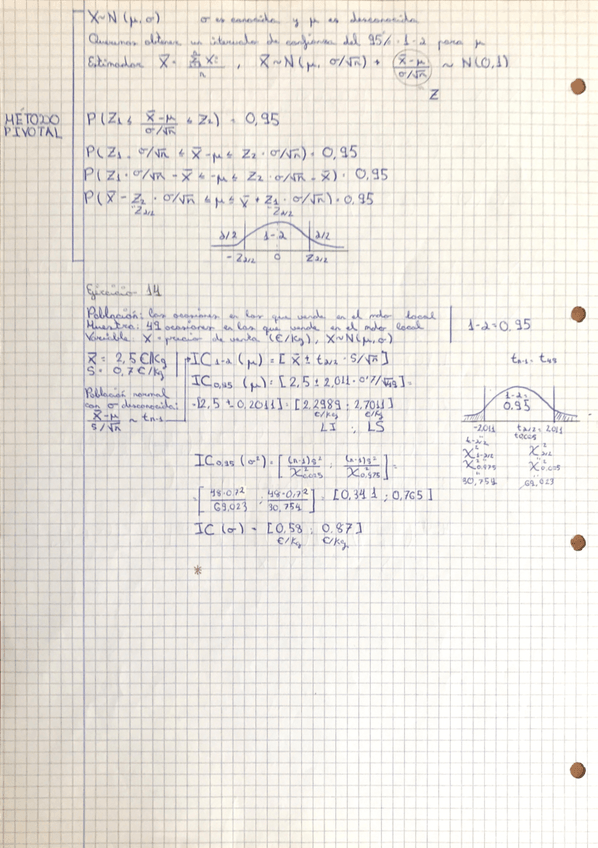 X~N(μ,σ) σ es conocida y μ es desconocida
Queremos obtener un intervalo de confianza del 95% = 1-α para μ
Estimador X̄ = Σxi/n , X̄~N(μ, σ/√n) → (X̄-μ)/(σ/√n) ~ N(0,1)
Z
MÉTODO PIVOTAL
P(Z1 ≤ (X̄-μ)/(σ/√n) ≤ Z2) = 0,95
P(Z1 · σ/√n ≤ X̄-μ ≤ Z2 · σ/√n) = 0,95
P(Z1 · σ/√n - X̄ ≤ -μ ≤ Z2 · σ/√n - X̄) = 0,95
P(X̄ - Z2 · σ/√n ≤ μ ≤ X̄ + Z1 · σ/√n) = 0,95
Zα/2 Zα/2
α/2 1-α α/2
-Zα/2 0 Zα/2
Ejercicio 14
Población: las ocasiones en las que vende en el mdor local
Muestra: 49 ocasiones en las que vende en el mdor local
Variable X = precio de venta (€/Kg), X~N(μ,σ)
1-α = 0,95
X̄ = 2,5 €/Kg
S = 0,7 €/Kg
Población normal
con σ desconocida:
(X̄-μ)/(S/√n) ~ tn-1
IC1-α (μ) = [X̄ ± tα/2 · S/√n]
IC0,95 (μ) = [2,5 ± 2,011 · 0'7/√49] =
= [2,5 ± 0,2011] = [2,2989 ; 2,7011]
€/Kg €/Kg
LI ; LS
tn-1 = t48
1-α=
0.95
-2,011 tα/2 = 2,011
t0,025
1-α/2
X²1-α/2 X²α/2
X²0,975 X²0,025
30,754 69,023
IC0,95 (σ²) = [(n-1)s²/X²0,025 ; (n-1)s²/X²0,975] =
= [48·0,7²/69,023 ; 48·0,7²/30,754] = [0,341 ; 0,765]
IC (σ) = [0,58 ; 0,87]
€/Kg €/Kg
*